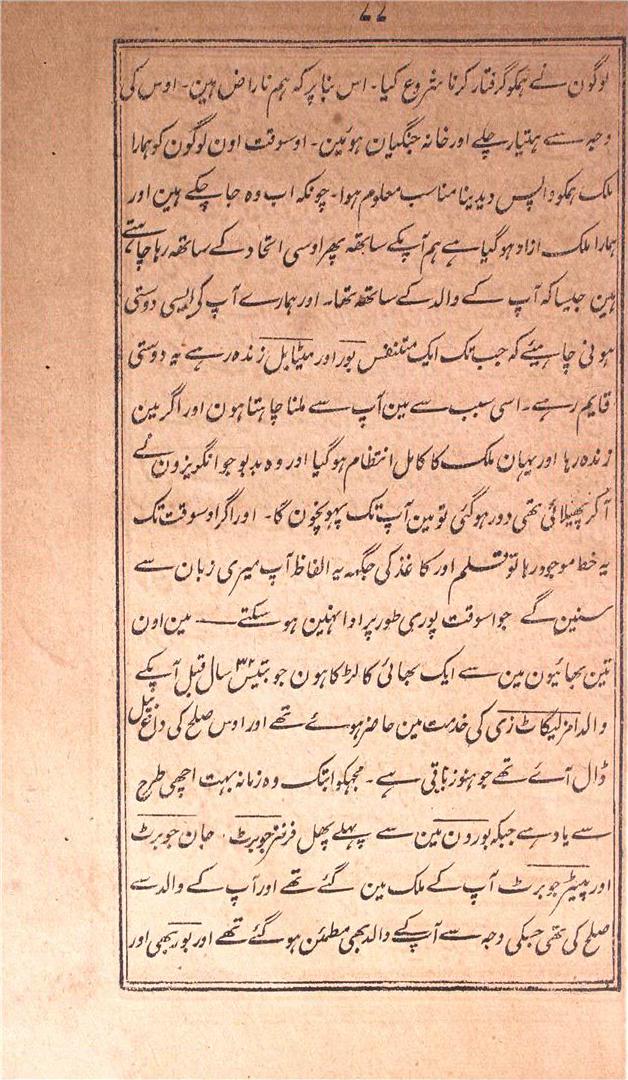 ۷۷
لوگون نے ہمکو گرفتار کرنا شروع کیا۔ اس بنا پر کہ ہم ناراض ہین۔ اوس کی
وجہ سے ہتیار چلے اور خانہ جنگیان ہوئین۔ اوسوقت اون لوگون کو ہمارا
ملک ہمکو واپس دیدینا مناسب معلوم ہوا۔ چونکہ اب وہ جا چکے ہین اور
ہمارا ملک ازاد ہو گیا ہے ہم آپکے ساتھہ پھر اوسی اتحاد کے ساتھہ رہا چاہتے
ہین جیسا کہ آپ کے والد کے ساتھہ تھا۔ اور ہمارے آپ کی ایسی دوستی
ہونی چاہیئے کہ جب تک ایک متنفس بور اور میٹابل زندہ رہے یہ دوستی
قایم رہے۔ اسی سبب سے مین آپ سے ملنا چاہتا ہون اور اگر مین
زندہ رہا اور یہان ملک کا کامل انتظام ہو گیا اور وہ بدبو جو انگریزون نے
آکر پھیلائی تھی دور ہو گئی تو مین آپ تک پہونچون گا۔ اور اگر اوسوقت تک
یہ خط موجود رہا تو قلم اور کاغذ کی جگہہ یہ الفاظ آپ میری زبان سے
سنین گے جو اسوقت پوری طور پر ادا نہین ہو سکتے۔ مین اون
تین بھائیون مین سے ایک بھائی کا لڑکا ہون جو بتیس ۳۲ سال قبل آپکے
والد امزلیکاٹ زی کی خدمت مین حاضر ہوئے تھے اور اوس صلح کی داغ بیل
ڈال آئے تھے جو ہنوز باقی ہے۔ مجہکو ابتک وہ زمانہ بہت اچھی طرح
سے یاد ہے جبکہ بورون مین سے پہلے پھل فرنز جوبرٹ۔ جان جوبرٹ
اور پیٹر جوبرٹ آپ کے ملک مین گئے تھے اور آپ کے والد سے
صلح کی تھی جسکی وجہ سے آپ کے والد بھی مطمئن ہو گئے تھے اور بور بھی اور